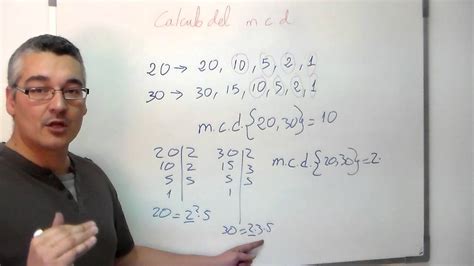 Calculo del m c d
20 → 20, 10, 5, 2, 1
30 → 30, 15, 10, 5, 2, 1
m.c.d. {20,30} = 10
20 | 2
10 | 2
5 | 5
1
20 = 2² · 5
30 | 2
15 | 3
5 | 5
1
30 = 2·3·5
m.c.d. {20,30} = 2·